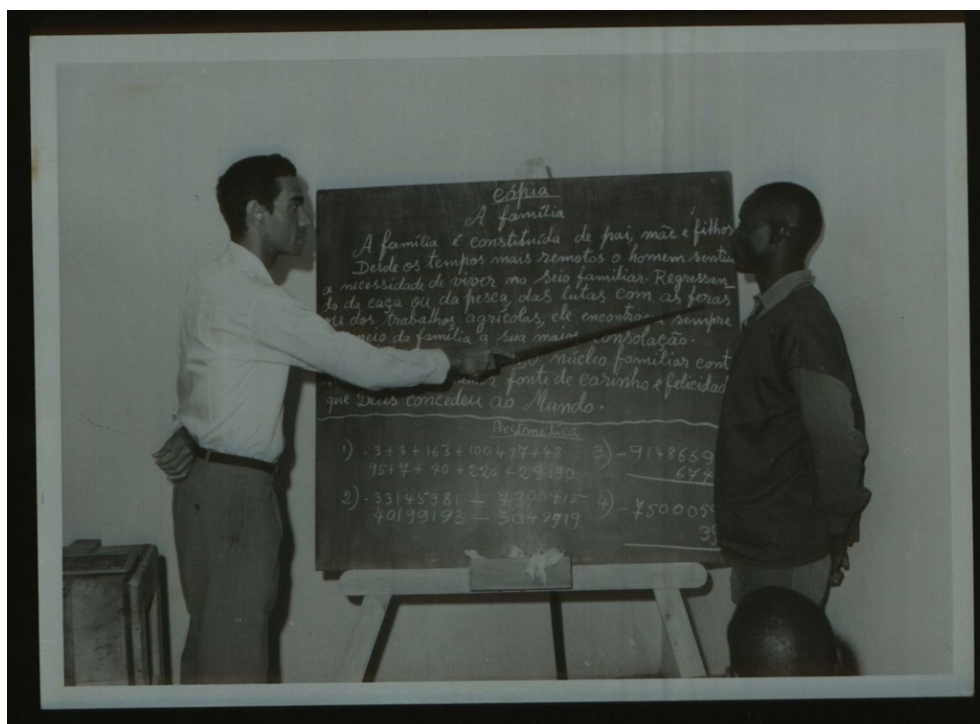 cópia
A família
A família é constituída de pai, mãe e filhos
Desde os tempos mais remotos o homem sentiu
a necessidade de viver no seio familiar. Regressan_
do da caça ou da pesca, das lutas com as feras
ou dos trabalhos agrícolas, ele encontrava sempre
meio da família a sua maior consolação.
núcleo familiar cont
fonte de carinho e felicidad
que Deus concedeu ao Mundo.
Aritmética
1) - 3+8+163+100497+48
95+7+90+220+29190
2) - 33145981 - 7300415
40199193 - 3049919
3) - 9148669
674
4) - 750005
39